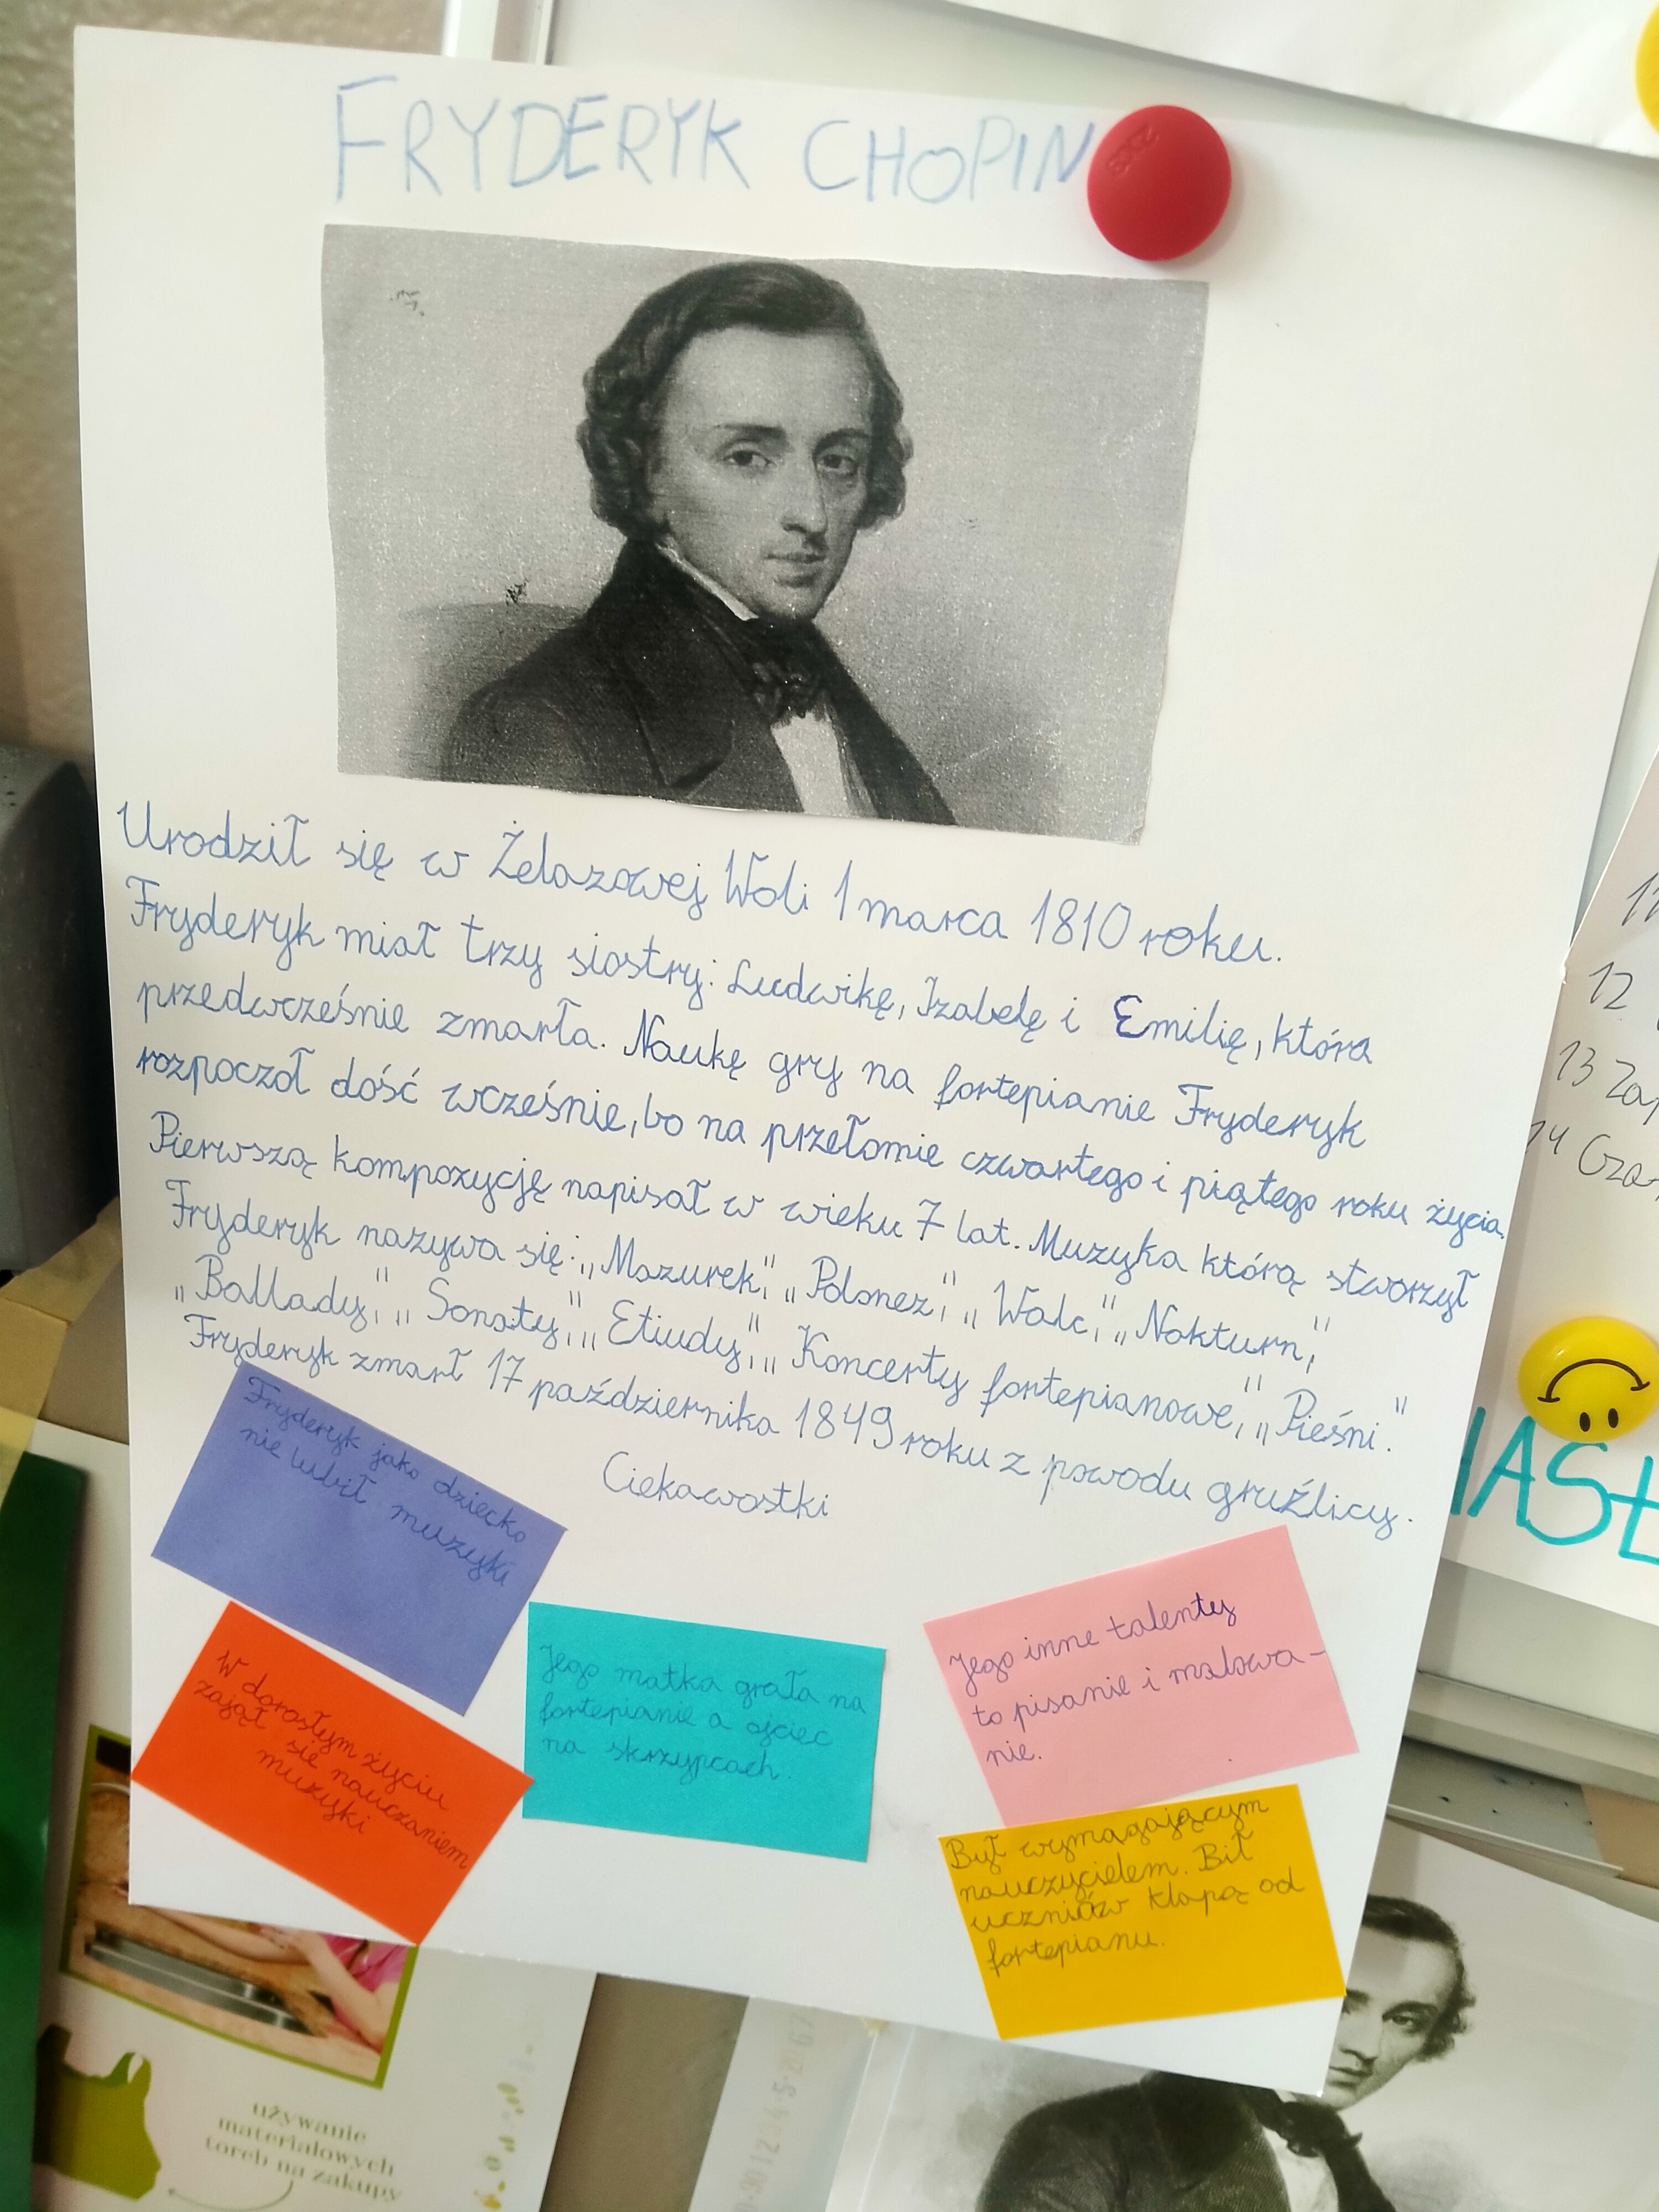 FRYDERYK CHOPIN
Urodził się w Żelazowej Woli 1 marca 1810 roku.
Fryderyk miał trzy siostry: Ludwikę, Izabelę i Emilię, która
przedwcześnie zmarła. Naukę gry na fortepianie Fryderyk
rozpoczoł dość wcześnie, bo na przełomie czwartego i piątego roku życia.
Pierwszą kompozycję napisał w wieku 7 lat. Muzyka którą stworzył
Fryderyk nazywa się: „Mazurek", „Polonez", „Walc", „Nokturn",
„Ballady", „Sonaty", „Etiudy", „Koncerty fortepianowe", „Pieśni."
Fryderyk zmarł 17 października 1849 roku z powodu gruźlicy.
Ciekawostki
Fryderyk jako dziecko
nie lubił muzyki
W dorosłym życiu
zajął się nauczaniem
muzyki
Jego matka grała na
fortepianie a ojciec
na skrzypcach.
Jego inne talenty
to pisanie i malowa-
nie.
Był wymagającym
nauczycielem. Bił
uczniów klapą od
fortepianu.
11
12
13
14
używanie
materiałowych
toreb na zakupy